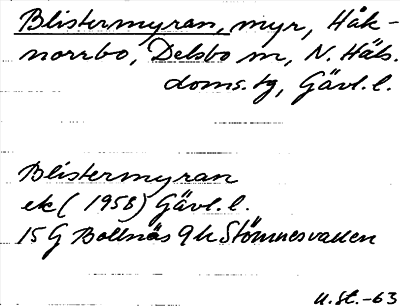 Blistermyran, myr, Håk-
norrbo, Delsbo sn, N. Häls.
doms.tg, Gävl.l.
Blistermyran
ek (1958) Gävl.l.
15 G Bollnäs 9 h Stömnesvallen
U.St.-63